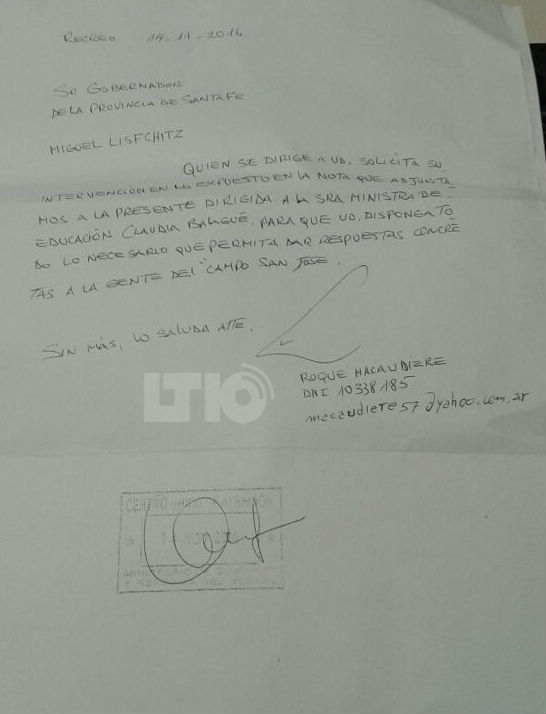 RECREO 14-11-2016
SR GOBERNADOR
DE LA PROVINCIA DE SANTA FE
MIGUEL LISFCHITZ
QUIEN SE DIRIGE A UD. SOLICITA SU
INTERVENCIÓN EN LO EXPUESTO EN LA NOTA QUE ADJUNTA
MOS A LA PRESENTE DIRIGIDA A LA SRA MINISTRA DE
EDUCACIÓN CLAUDIA BALAGUÉ, PARA QUE UD. DISPONGA TO
DO LO NECESARIO QUE PERMITA DAR RESPUESTAS CONCRE
TAS A LA GENTE DEL "CAMPO SAN JOSE.
SIN MÁS, LO SALUDA ATTE.
ROQUE MACAUDIERE
DNI 10338185
macaudiere57@yahoo.com.ar
LT10
CENTRO